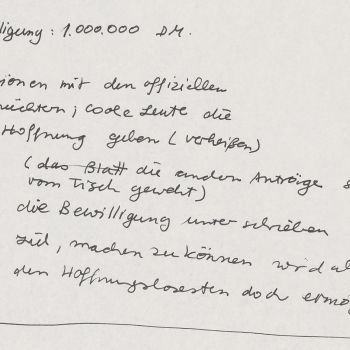 ligung : 1.000.000 DM.
ionen mit den offiziellen
nüchtern, coole Leute die
Hoffnung geben (verheißen)
(das Blatt die andern Anträge s
vom Tisch geweht)
die Bewilligung unterschrieben
zid, machen zu können wird al
den Hoffnungslosesten doch ermög